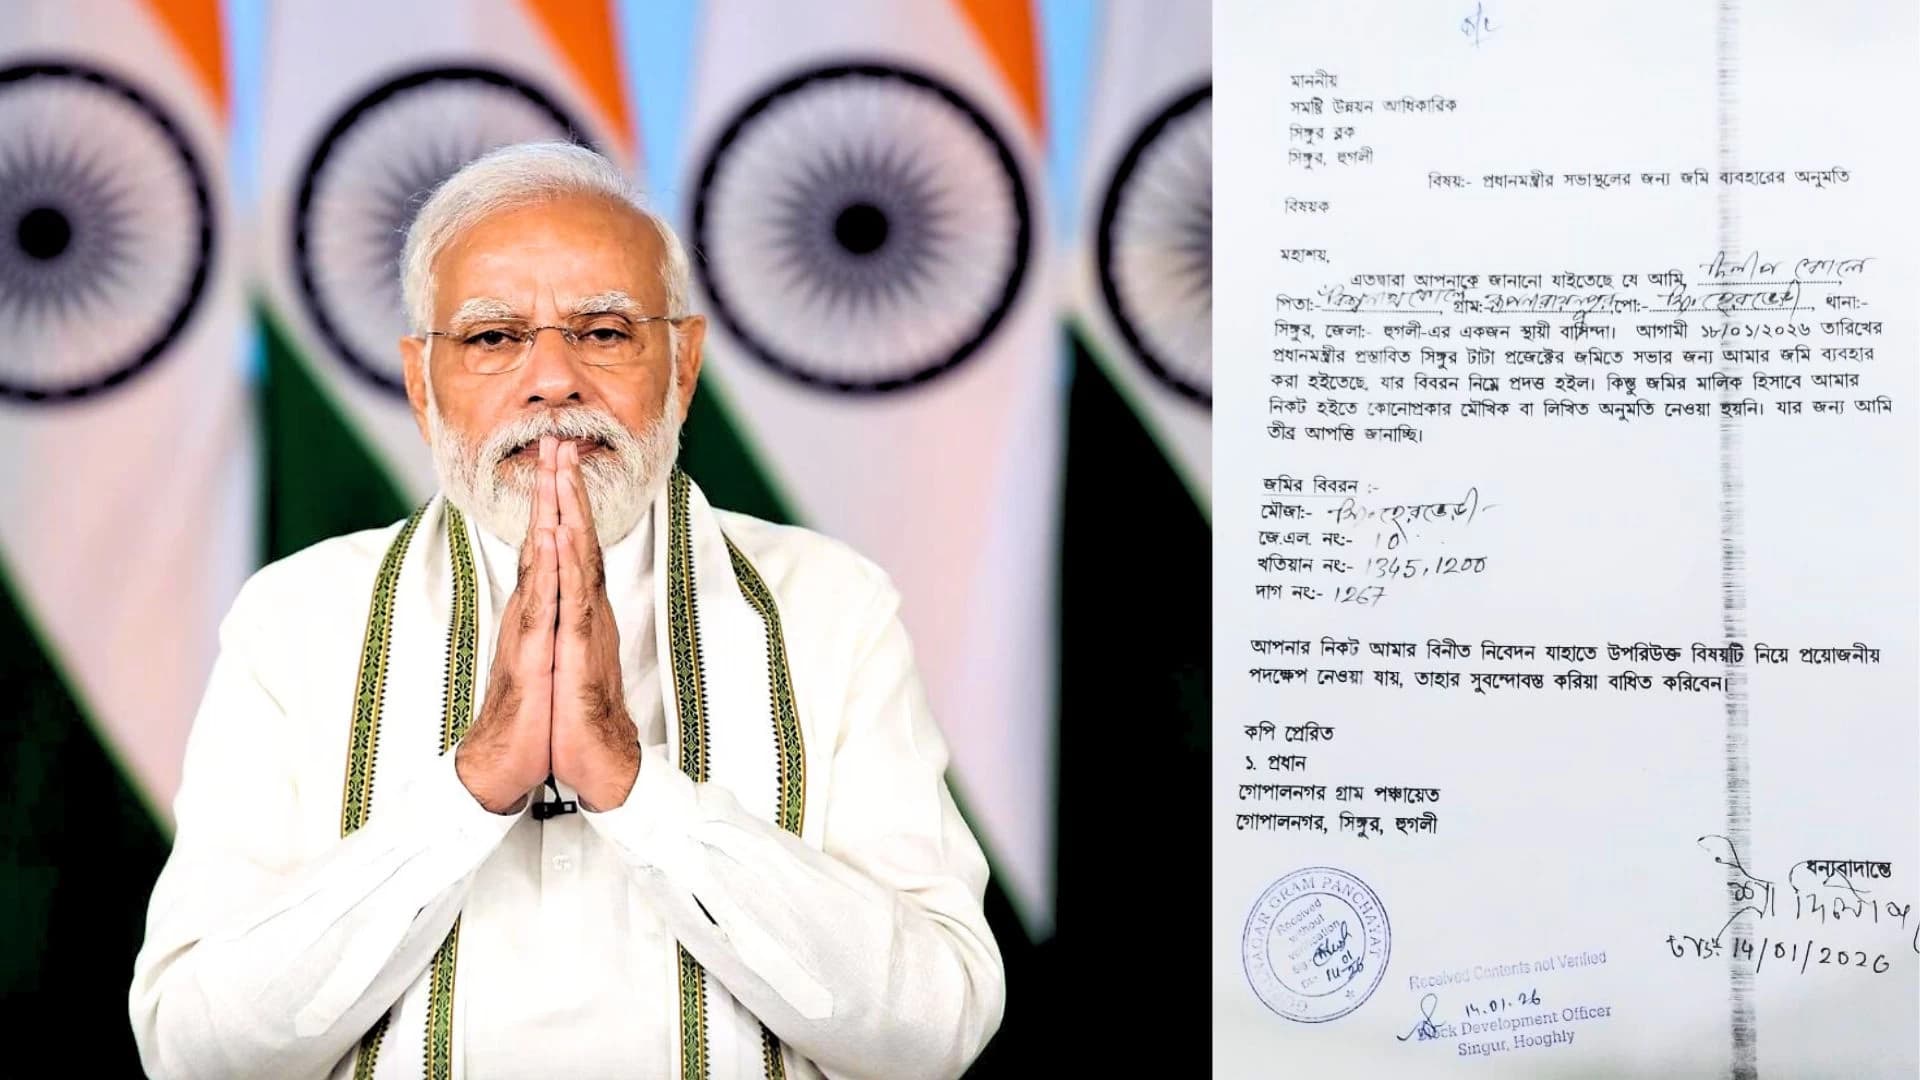 মাননীয়
সমষ্টি উন্নয়ন আধিকারিক
সিঙ্গুর ব্লক
সিঙ্গুর, হুগলী
বিষয়:- প্রধানমন্ত্রীর সভাস্থলের জন্য জমি ব্যবহারের অনুমতি
বিষয়ক
মহাশয়,
এতদ্বারা আপনাকে জানানো যাইতেছে যে আমি, দিলীপ কোলে
পিতা:- বিশ্বনাথ কোলে গ্রাম:- রূপনারায়নপুর, পো:- সিংহেরভেড়ী, থানা:-
সিঙ্গুর, জেলা:- হুগলী-এর একজন স্থায়ী বাসিন্দা। আগামী ১৮/০১/২০২৬ তারিখের
প্রধানমন্ত্রীর প্রস্তাবিত সিঙ্গুর টাটা প্রজেক্টের জমিতে সভার জন্য আমার জমি ব্যবহার
করা হইতেছে, যার বিবরন নিম্নে প্রদত্ত হইল। কিন্তু জমির মালিক হিসাবে আমার
নিকট হইতে কোনোপ্রকার মৌখিক বা লিখিত অনুমতি নেওয়া হয়নি। যার জন্য আমি
তীব্র আপত্তি জানাচ্ছি।
জমির বিবরন :-
মৌজা:- সিংহেরভেড়ী
জে.এল. নং:- 10
খতিয়ান নং:- 1345, 1200
দাগ নং:- 1267
আপনার নিকট আমার বিনীত নিবেদন যাহাতে উপরিউক্ত বিষয়টি নিয়ে প্রয়োজনীয়
পদক্ষেপ নেওয়া যায়, তাহার সুবন্দোবস্ত করিয়া বাধিত করিবেন।
কপি প্রেরিত
১. প্রধান
গোপালনগর গ্রাম পঞ্চায়েত
গোপালনগর, সিঙ্গুর, হুগলী
ধন্যবাদান্তে
শ্রী দিলীপ
14/01/2026
GOPALNAGAR GRAM PANCHAYAT
Received
without
verification
14-01
26
Received Contents not Verified
14.01.26
Block Development Officer
Singur, Hooghly